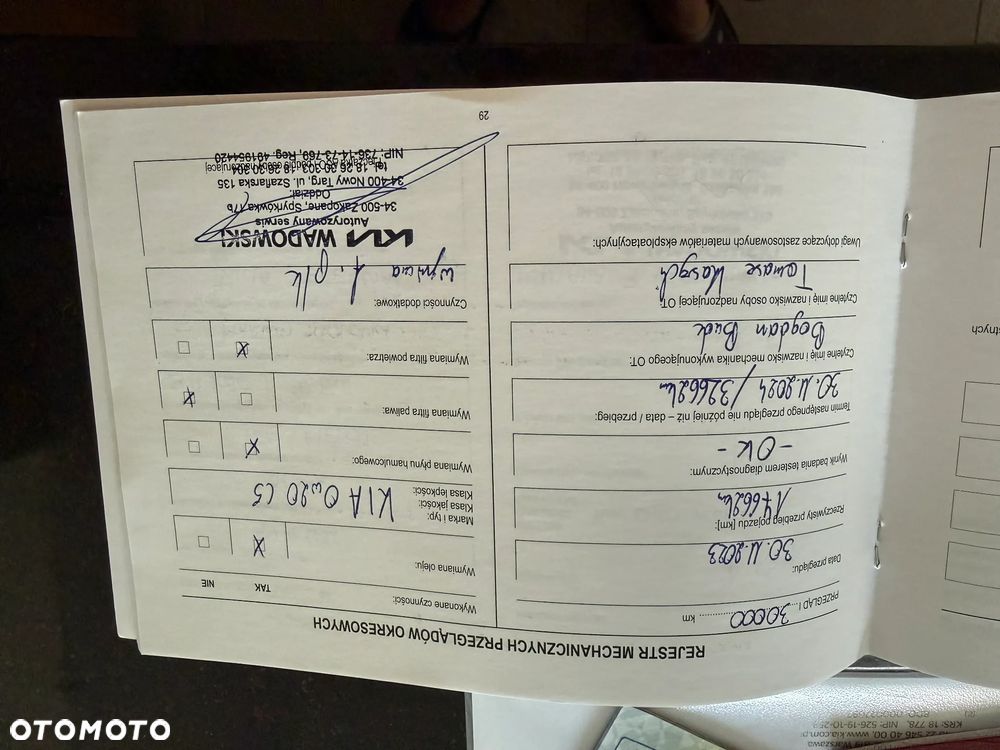 REJESTR MECHANICZNYCH PRZEGLĄDÓW OKRESOWYCH
PRZEGLĄD I 30.000 km
Data przeglądu:
30.11.2023
Rzeczywisty przebieg pojazdu [km]:
17662km
Wynik badania testerem diagnostycznym:
- OK -
Termin następnego przeglądu nie później niż – data / przebieg:
30.11.2024 / 32662km
Czytelne imię i nazwisko mechanika wykonującego OT:
Bogdan
Czytelne imię i nazwisko osoby nadzorującej OT:
Tomasz
Uwagi dotyczące zastosowanych materiałów eksploatacyjnych:
Wykonane czynności:
TAK NIE
Wymiana oleju:
X
Marka i typ:
Klasa jakości:
Klasa lepkości:
KIA 0w20 C5
Wymiana płynu hamulcowego:
X
Wymiana filtra paliwa:
X
Wymiana filtra powietrza:
X
Czynności dodatkowe:
KIA WADOWSKI
Autoryzowany serwis
34-500 Zakopane, Spyrkówka 17b
Oddział:
34-400 Nowy Targ, ul. Szaflarska 135
tel. 18 26 30 303, 18 26 30 304
NIP. 736-14-73-769, Reg. 491954420
29
OTOMOTO